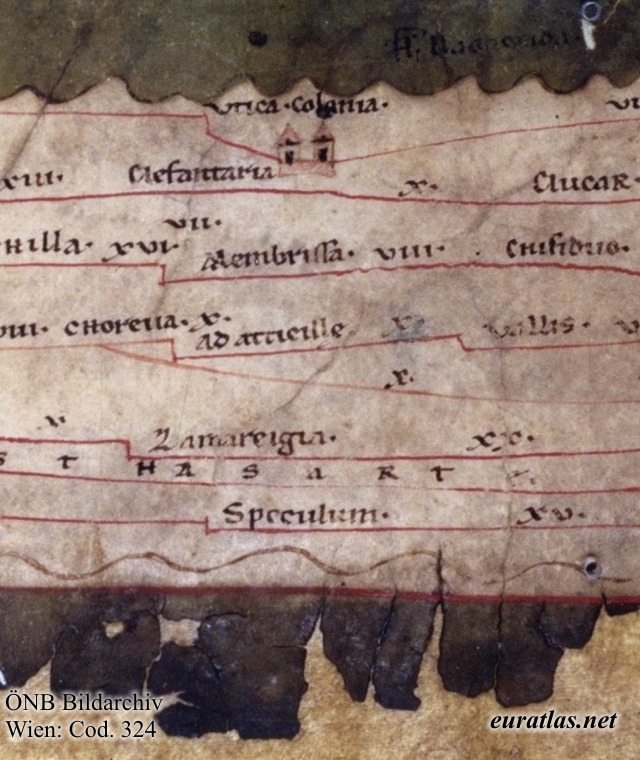 Vtica · Colonia ·
xiii · Clefantaria x · Clucar
vii ·
hilla · xvi · Membrissa · viii · Chisiduo ·
viii · choreva · x · ad atticille x vallis ·
x ·
v Zamareigia · xx ·
s t H A S A R T
Speculum · xv ·
ÖNB Bildarchiv
Wien: Cod. 324
euratlas.net